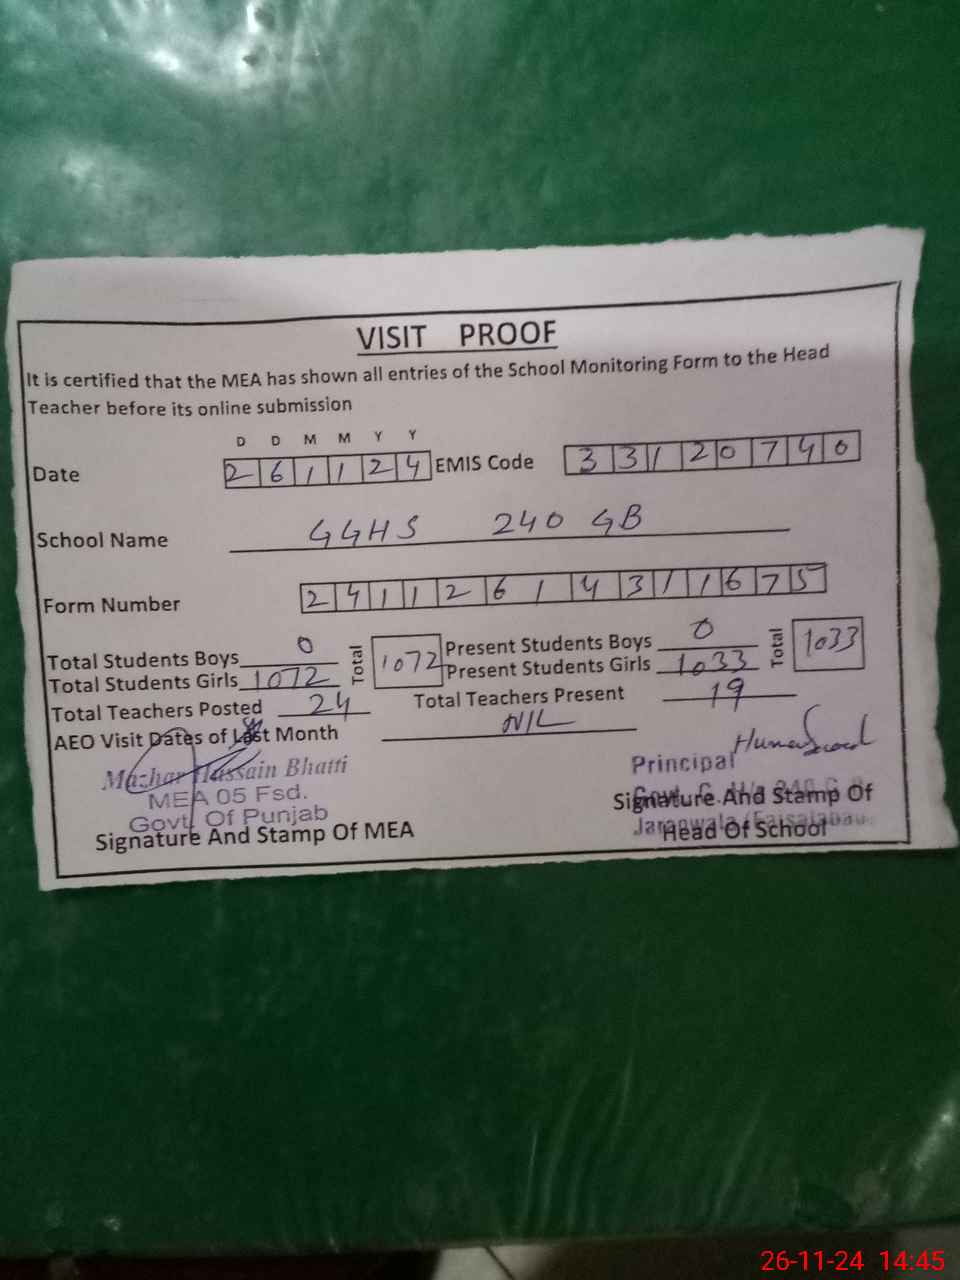 VISIT PROOF
It is certified that the MEA has shown all entries of the School Monitoring Form to the Head
Teacher before its online submission
D D M M Y Y
Date 2 6 1 1 2 4 EMIS Code 3 3 1 2 0 7 4 0
School Name GGHS 240 GB
Form Number 2 4 1 1 2 6 1 4 3 1 1 6 7 5
Total Students Boys 0 Total 1072 Present Students Boys 0 Total 1033
Total Students Girls 1072 Present Students Girls 1033
Total Teachers Posted 24 Total Teachers Present 19
AEO Visit Dates of Last Month NIL
Mazhar Hussain Bhatti
MEA 05 Fsd.
Govt. Of Punjab
Signature And Stamp Of MEA
Principal
Signature And Stamp Of
Jaranwala (Faisalabad)
Head Of School
26-11-24 14:45